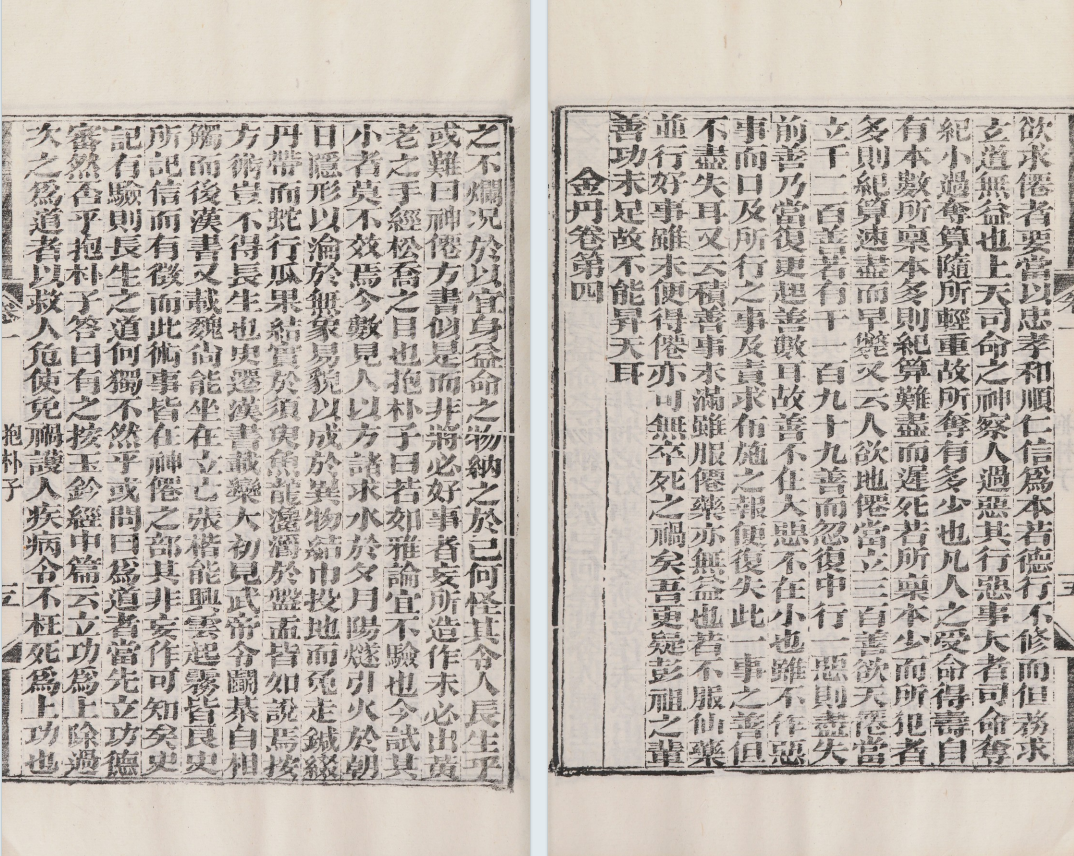 之不爛况於以宜身益命之物納之於己何怪其令人長生乎
或難曰神僊方書似是而非將必好事者妄所造作未必出黃
老之手經松喬之目也抱朴子曰若如雅論宜不驗也今試其
小者莫不效焉今數見人以方諸求水於夕月陽燧引火於朝
日隱形以淪於無象易貌以成於異物結巾投地而兔走鍼綴
丹帶而蛇行瓜果結實於須臾魚龍瀺灂於盤盂皆如說焉按
方術豈不得長生也史遷漢書載欒大初見武帝令鬭棊自相
觸而後漢書又載魏尙能坐在立亡張楷能興雲起霧皆良史
所記信而有徵而此術事皆在神僊之部其非妄作可知矣史
記有驗則長生之道何獨不然乎或問曰爲道者當先立功德
審然否乎抱朴子答曰有之按玉鈐經中篇云立功爲上除過
次之爲道者以救人危使免禍護人疾病令不枉死爲上功也
卷一
抱朴子
五
欲求僊者要當以忠孝和順仁信爲本若德行不修而但務求
玄道無益也上天司命之神察人過惡其行惡事大者司命奪
紀小過奪算隨所輕重故所奪有多少也凡人之受命得壽自
有本數所稟本多則紀算難盡而遲死若所稟本少而所犯者
多則紀算速盡而早斃又云人欲地僊當立三百善欲天僊當
立千二百善若有千一百九十九善而忽復中行一惡則盡失
前善乃當復更起善數耳故善不在大惡不在小也雖不作惡
事而口及所行之事及責求布施之報便復失此一事之善但
不盡失耳又云積善事未滿雖服僊藥亦無益也若不服仙藥
並行好事雖未便得僊亦可無卒死之禍矣吾更疑彭祖之輩
善功未足故不能昇天耳
金丹卷第四